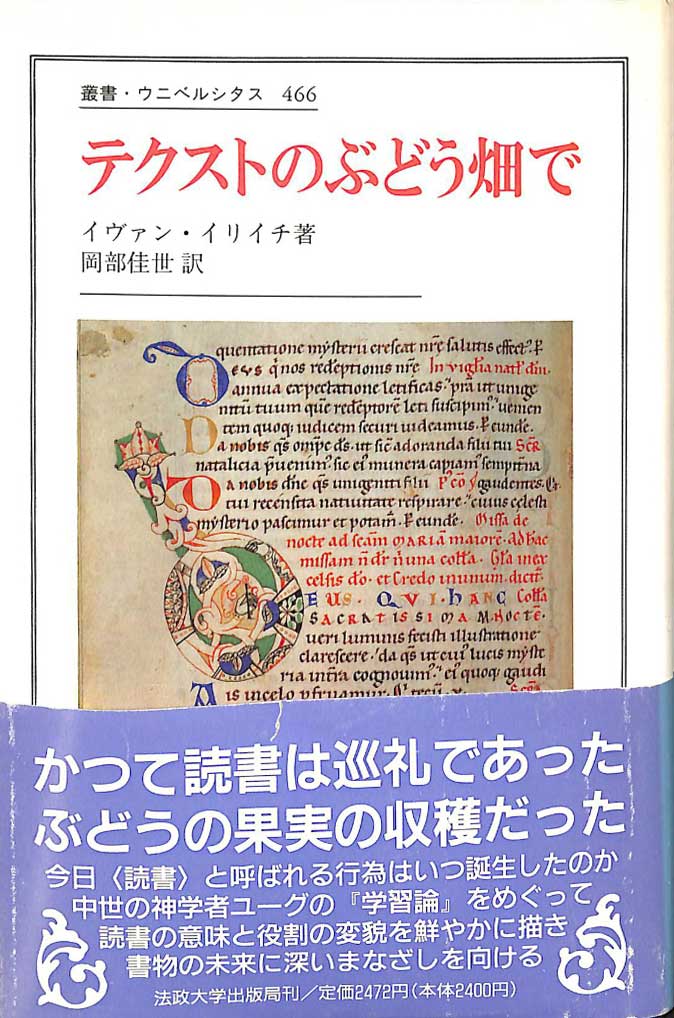 叢書・ウニベルシタス 466
テクストのぶどう畑で
イヴァン・イリイチ著
岡部佳世 訳
quentatione mysterii crescat nr̄e salutis effect᷒. P
eus q̇ nos redēptionis nr̄e In vigl̄ia natł dn̄i.
annua expectatione letificas. p̄ra ut unige
nitū tuum quē redēptorē leti suscipim᷒. uenien
tem quoq; iudicem securi uideamus. P eunde.
Da nobis qs̄ om̄pc̄ ds̄. ut sic̄ adoranda filii tui
natalicia p̄uenim᷒. sic ei᷒ munera capiam᷒ sempit̄na
Da nobis dn̄e qs̄ unigeniti filii gaudentes.
tui recensita natiuitate respirare. cuius celesti
mysterio pascimur et potam᷒. P eunde. Missa de
nocte ad scām MARIĀ maiorē. Ad hac
missam n̄ dr̄ n̄ una coll̄a. Gl̄a in ex
celsis d̄o. et Credo in unum. dicit᷒.
DEUS. QUI. HANC Coll̄a
SACRATISSIMAM NOCTĒ.
ueri luminis fecisti illustratione
clarescere. da qs̄ ut cui᷒ lucis myste
ria in t̄ra cognouim᷒. ei᷒ quoq; gaudi
is in celo pfruamur.
かつて読書は巡礼であった
ぶどうの果実の収穫だった
今日〈読書〉と呼ばれる行為はいつ誕生したのか
中世の神学者ユーグの『学習論』をめぐって
読書の意味と役割の変貌を鮮やかに描き
書物の未来に深いまなざしを向ける
法政大学出版局刊／定価2472円(本体2400円)